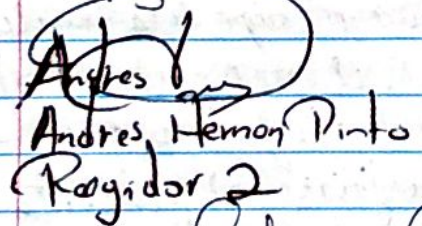 Andres
Andres Hernon Pinto
Regidor 2